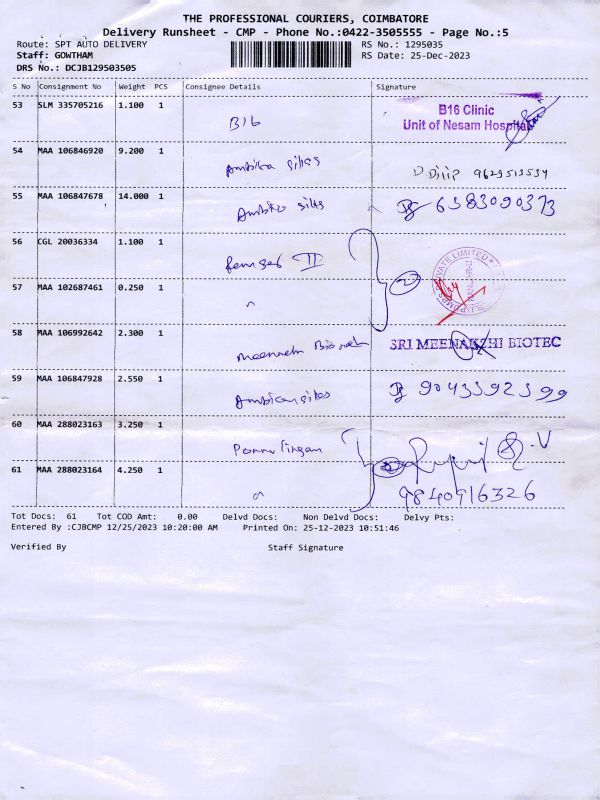 THE PROFESSIONAL COURIERS, COIMBATORE
Delivery Runsheet - CMP - Phone No.:0422-3505555 - Page No.:5
Route: SPT AUTO DELIVERY
RS No.: 1295035
Staff: GOWTHAM
RS Date: 25-Dec-2023
DRS No.: DCJB129503505
S No Consignment No Weight PCS Consignee Details Signature
53 SLM 335705216 1.100 1 B16
B16 Clinic
Unit of Nesam Hospital
54 MAA 106846920 9.200 1 Ambika silks D Dilip
55 MAA 106847678 14.000 1 Ambika silks 6383090373
56 CGL 20036334 1.100 1 II
57 MAA 102687461 0.250 1 "
PRIVATE LIMITED
58 MAA 106992642 2.300 1 Meenakshi Biotech SRI MEENAKSHI BIOTEC
59 MAA 106847928 2.550 1 Ambica silks 9043392399
60 MAA 288023163 3.250 1 Ponnu lingam
61 MAA 288023164 4.250 1 " 9840916326
Tot Docs: 61 Tot COD Amt: 0.00 Delvd Docs: Non Delvd Docs: Delvy Pts:
Entered By :CJBCMP 12/25/2023 10:20:00 AM Printed On: 25-12-2023 10:51:46
Verified By Staff Signature